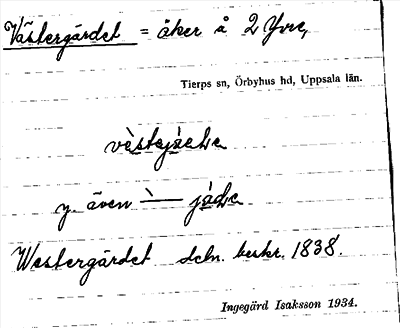 Västergärdet = åker å 2 Yvre,
Tierps sn, Örbyhus hd, Uppsala län.
y. även
Westergärdet deln. beskr. 1838.
Ingegärd Isaksson 1934.